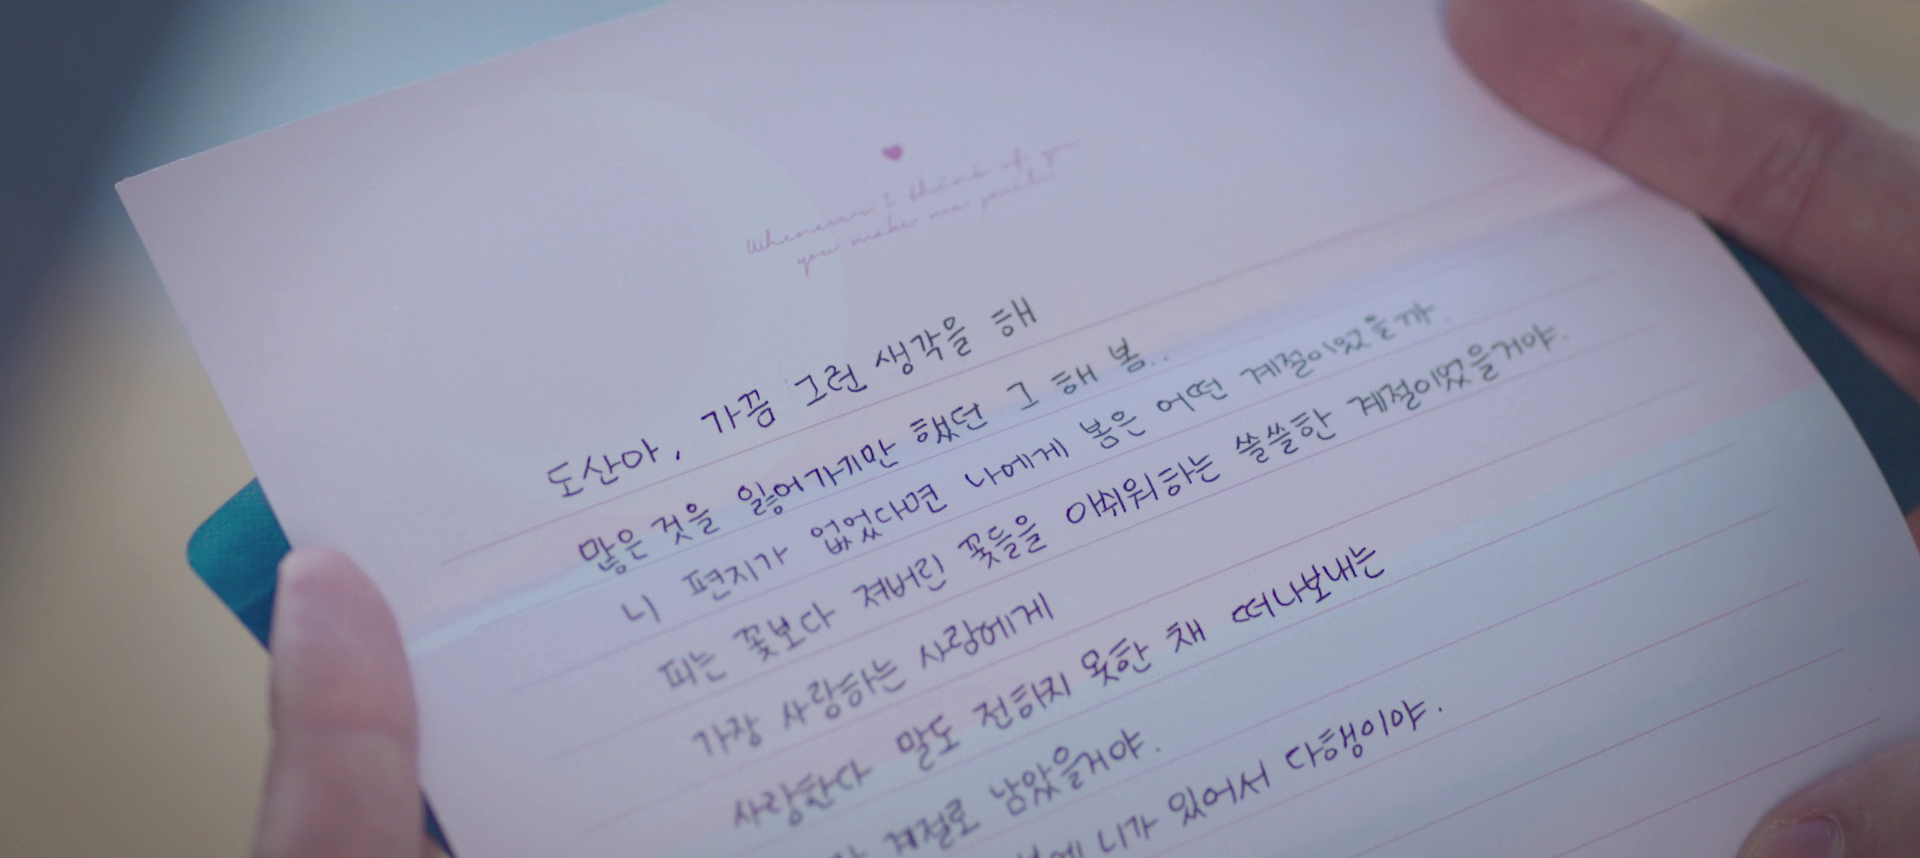 Whenever I think of you
you make me smile
도산아, 가끔 그런 생각을 해
많은 것을 잃어가기만 했던 그 해 봄..
니 편지가 없었다면 나에게 봄은 어떤 계절이었을까.
피는 꽃보다 져버린 꽃들을 아쉬워하는 쓸쓸한 계절이었을거야.
가장 사랑하는 사람에게
사랑한다 말도 전하지 못한 채 떠나보내는
계절로 남았을거야.
니가 있어서 다행이야.